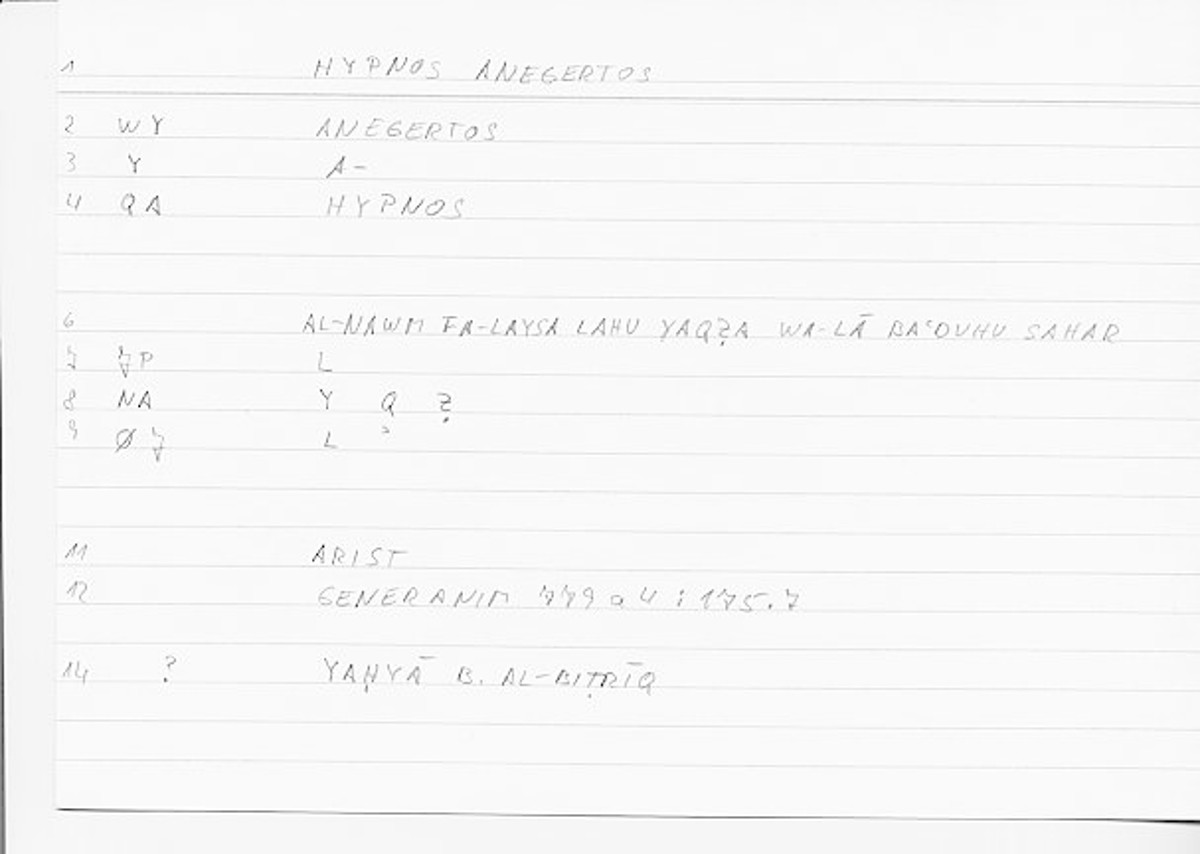 1 HYPNOS ANEGERTOS
2 WY ANEGERTOS
3 Y A-
4 QA HYPNOS
6 AL-NAWM FA-LAYSA LAHU YAQẒA WA-LĀ BAʿDUHU SAHAR
7 P L
8 NA Y Q Ẓ
9 Ø L ʾ
11 ARIST
12 GENERANIM 779a4 : 175.7
14 ? YAḤYĀ B. AL-BIṬRĪQ